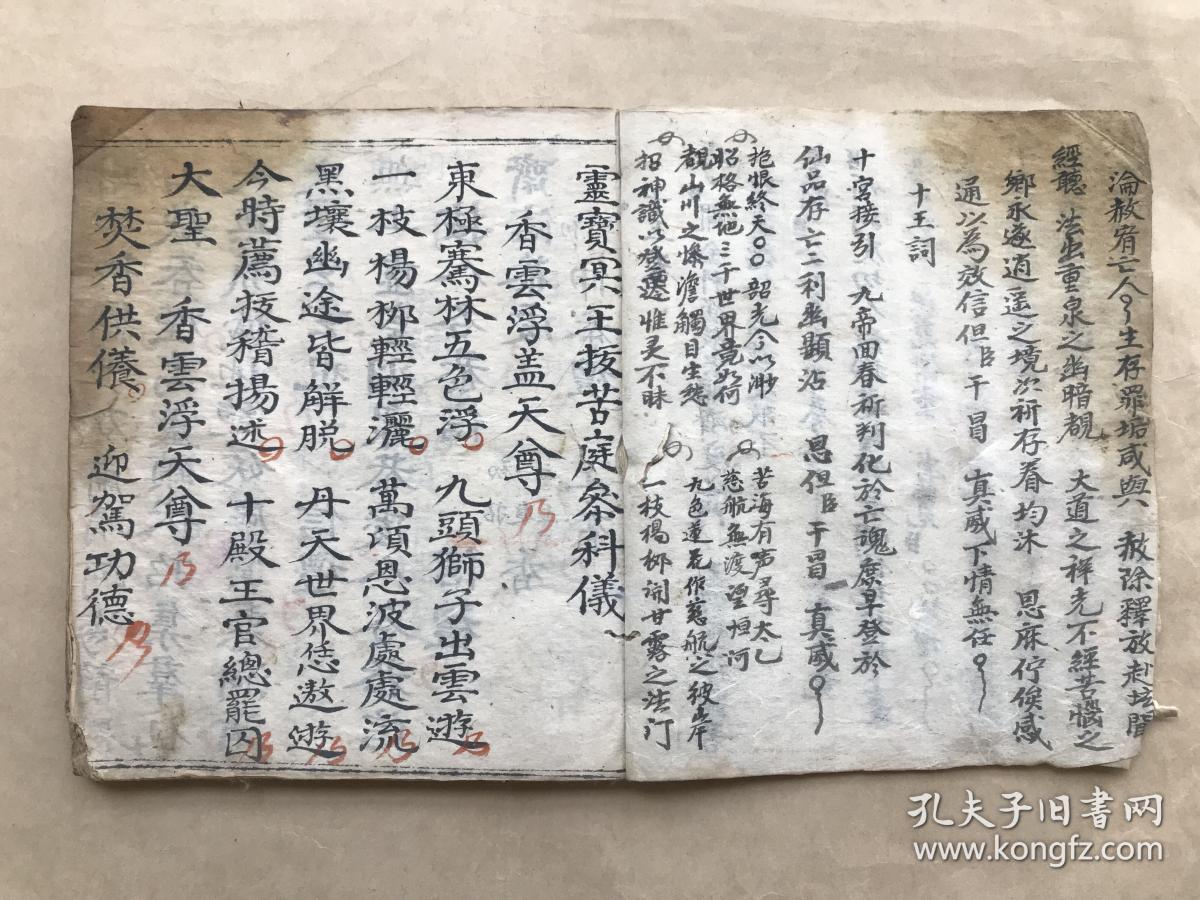 淪赦宥亡人生存罪垢咸與 赦除釋放赴坛聞
經聽 法出重泉之幽暗覩 大道之祥光不經苦惱之
鄉永遂逍遥之境次祈存眷均沐 恩庥佇俟感
通以為效信但臣干冒 真威下情無任
十王詞
十宫接引 九帝回春祈判化於亡魂庶早登於
仙品存亡二利幽顯沾 恩但臣干冒 真威
抱恨終天〇〇韶光今以渺 苦海有声尋太乙
昭格無地三千世界竟如何 慈航無渡望恒河
覩山川之惨澹觸目生愁 九色蓮花作慈航之彼岸
招神識以惟灵不昧 一枝楊柳開甘露之法门
靈寶冥王拔苦庭參科儀
香雲浮盖天尊
東極騫林五色浮 九頭獅子出雲遊
一枝楊柳輕輕灑 萬頃恩波處處流
黑壤幽途皆解脱 丹天世界恁遨遊
今時薦拔稽揚述 十殿王官總罷囚
大聖 香雲浮天尊
焚香供養 迎駕功德
孔夫子旧书网
www.kongfz.com